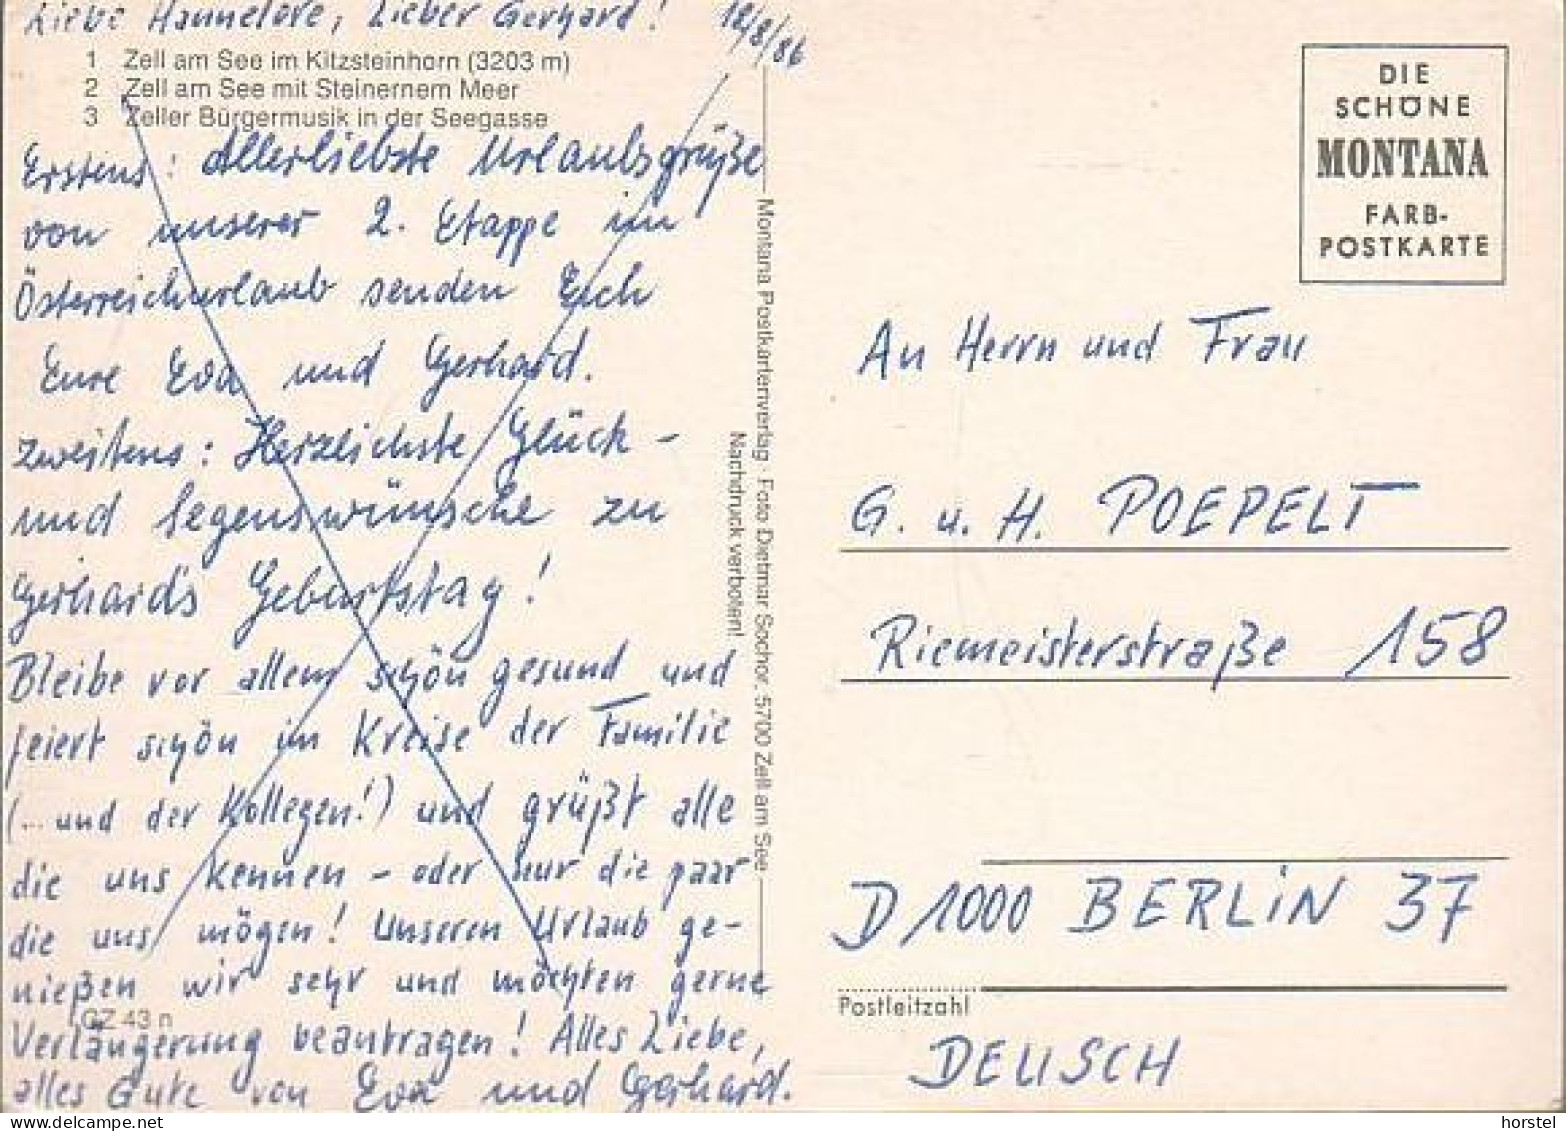 Liebe Hannelore, Lieber Gerhard! 18/8/86
1 Zell am See im Kitzsteinhorn (3203 m)
2 Zell am See mit Steinernem Meer
3 Zeller Bürgermusik in der Seegasse
Erstens: Allerliebste Urlaubsgrüße
von unserer 2. Etappe im
Österreichurlaub senden Euch
Eure Eva und Gerhard.
Zweitens: Herzlichste Glück-
und Segenswünsche zu
Gerhard's Geburtstag!
Bleibe vor allem schön gesund und
feiert schön im Kreise der Familie
(... und der Kollegen!) und grüßt alle
die uns kennen - oder nur die paar
die uns mögen! Unseren Urlaub ge-
nießen wir sehr und möchten gerne
GZ 43 n
Verlängerung beantragen! Alles Liebe,
alles Gute von Eva und Gerhard.
Montana Postkartenverlag · Foto Dietmar Sochor, 5700 Zell am See
Nachdruck verboten!
DIE
SCHÖNE
MONTANA
FARB-
POSTKARTE
An Herrn und Frau
G. u. H. POEPELT
Riemeisterstraße 158
D 1000 BERLIN 37
Postleitzahl
DEUSCH
horstel